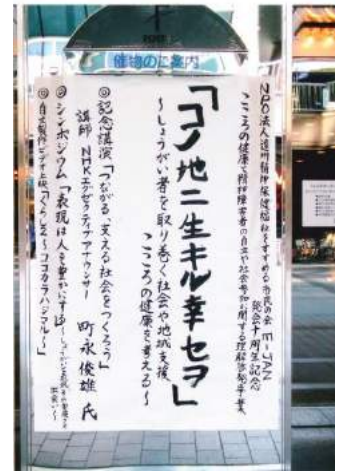 催物のご案内
NPO法人遠州精神保健福祉をすすめる市民の会 E-JAN
発会十周年記念
こころの健康と精神障害者の自立や社会参加に関する理解啓発事業
「コノ地ニ生キル幸セヲ」
～しょうがい者を取り巻く社会や地域支援
こころの健康を考える～
◎記念講演「つながる、支える社会をつくろう」
講師 NHKエグゼクティブアナウンサー 町永俊雄氏
◎シンポジウム「表現は人を豊かにする
出会い～
◎自主製作ビデオ上映「
～ココカラハジマル～」